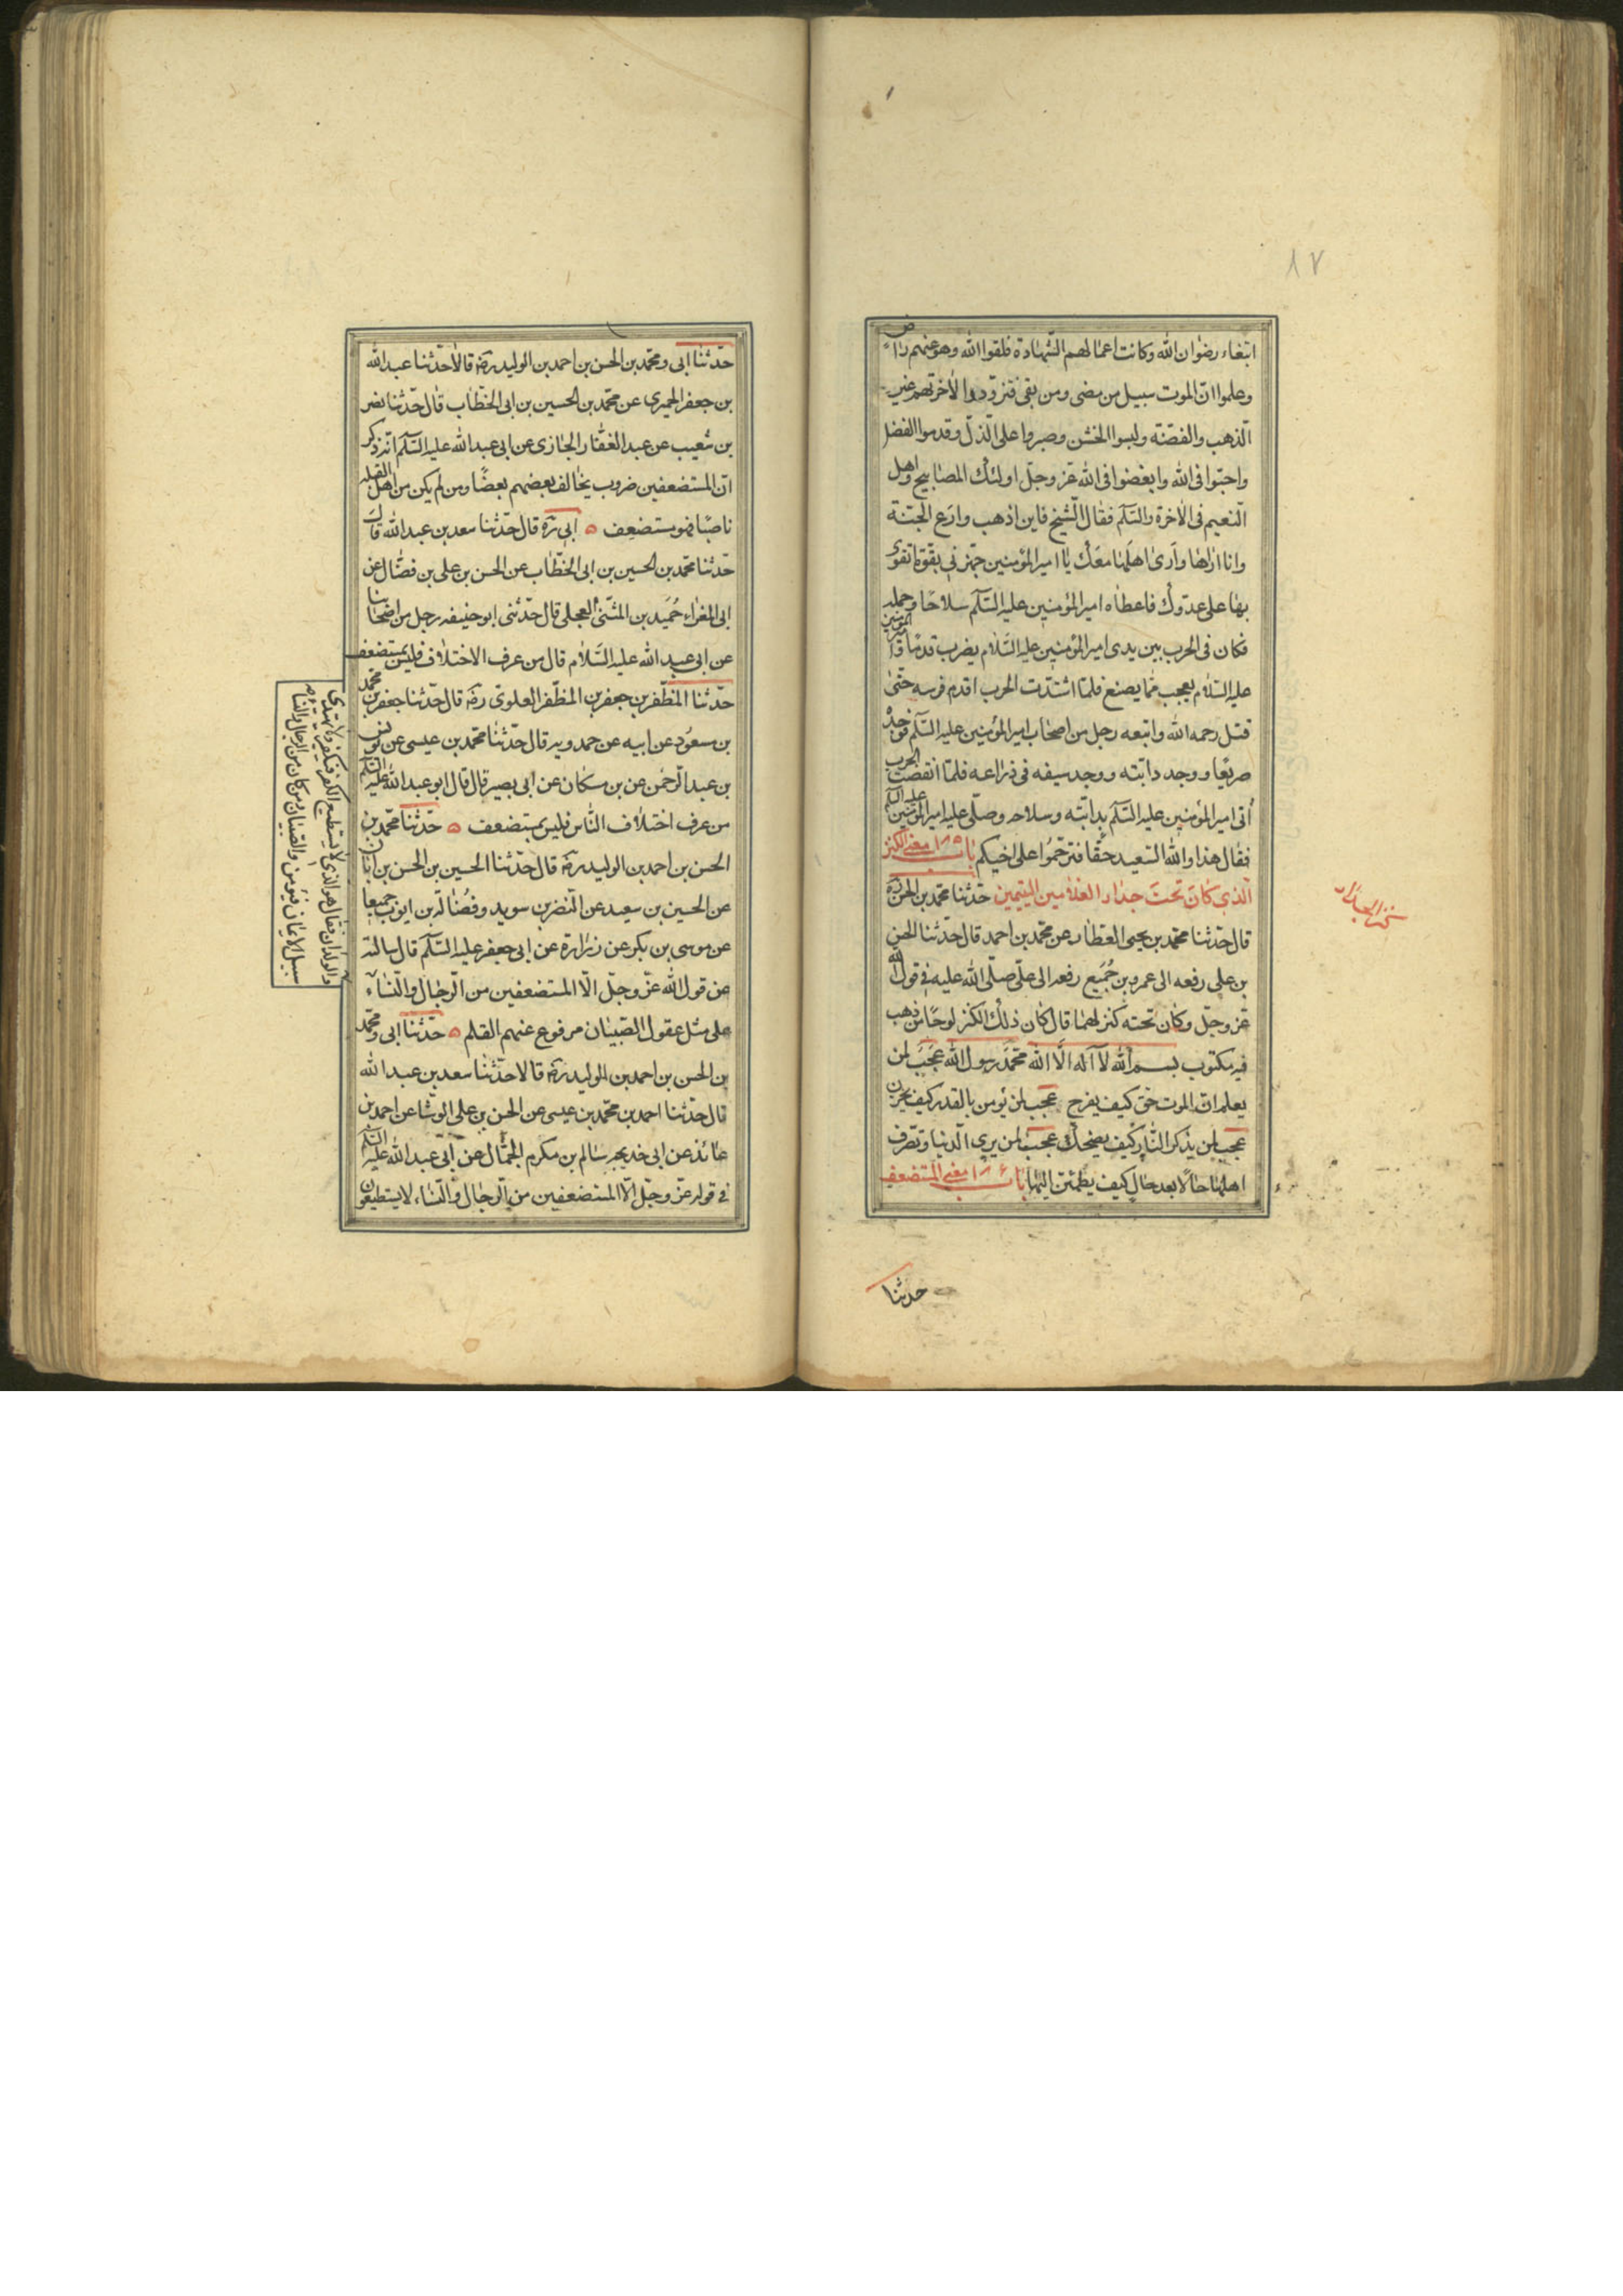 ٨٧
ابتغاء رضوان الله وكانت اعمالهم الشهادة فلقوا الله وهو عنهم راض
وعلموا ان الموت سبيل من مضى ومن بقى فتزودوا لاخرتهم غير
الذهب والفضة ولبسوا الخشن وصبروا على الذل وقدموا الفضل
واحبوا فى الله وابغضوا فى الله عز وجل اولئك المصابيح واهل
النعيم فى الاخرة والسلم فقال الشيخ فاين اذهب وادع الجنة
وانا اراها وارى اهلها معك يا امير المؤمنين جهزنى بقوة اتقوى
بها على عدوك فاعطاه امير المؤمنين عليه السلم سلاحا وحمله
فكان فى الحرب بين يدى امير المؤمنين عليه السلام يضرب قدما وامير المؤمنين
عليه السلام يعجب مما يصنع فلما اشتدت الحرب اقدم فرسه حتى
قتل رحمه الله واتبعه رجل من اصحاب امير المؤمنين عليه السلم فوجده
صريعا ووجد دابته ووجد سيفه فى ذراعه فلما انقضت الحرب
أتى امير المؤمنين عليه السلم بدابته وسلاحه وصلى عليه امير المؤمنين عليه السلم
فقال هذا والله السعيد حقا فترحموا على اخيكم باب ١٨٥ معنى الكنز
الذى كان تحت جدار الغلامين اليتيمين حدثنا محمد بن الحسن ره
قال حدثنا محمد بن يحيى العطار عن محمد بن احمد قال حدثنا الحسن
بن على رفعه الى عمرو بن جُمَيع رفعه الى على صلى الله عليه فى قول الله
عز وجل وكان تحته كنز لهما قال كان ذلك الكنز لوحا من ذهب
فيه مكتوب بسم الله لا آله الا الله محمد رسول الله عجب لمن
يعلم ان الموت حق كيف يفرح عجب لمن يؤمن بالقدر كيف يحزن
عجب لمن يذكر النار كيف يضحك عجب لمن يرى الدنيا وتصرف
اهلها حالا بعد حال كيف يطمئن اليها باب ١٨٦ معنى المستضعف
حدثنا
حدثنا ابى ومحمد بن الحسن بن احمد بن الوليد ره قالا حدثنا عبد الله
بن جعفر الحميرى عن محمد بن الحسين بن ابى الخطاب قال حدثنا نضر
بن شعيب عن عبد الغفار الجازى عن ابى عبد الله عليه السلم انه ذكر
ان المستضعفين ضروب يخالف بعضهم بعضا ومن لم يكن من اهل القبلة
ناصبا فهو مستضعف ابى ره قال حدثنا سعد بن عبد الله قال
حدثنا محمد بن الحسين بن ابى الخطاب عن الحسن بن على بن فضال عن
ابى المغراء حُمَيد بن المثنى العجلى قال حدثنى ابو حنيفه رجل من اصحابنا
عن ابى عبد الله عليه السلام قال من عرف الاختلاف فليس بمستضعف
حدثنا المظفر بن جعفر بن المظفر العلوى ره قال حدثنا جعفر بن محمد
بن مسعود عن ابيه عن حمدويه قال حدثنا محمد بن عيسى عن يونس
بن عبد الرحمن عن بن مسكان عن ابى بصير قال قال ابو عبد الله عليه السلم
من عرف اختلاف الناس فليس بمستضعف حدثنا محمد بن
الحسن بن احمد بن الوليد ره قال حدثنا الحسين بن الحسن بن ابان
عن الحسين بن سعيد عن النضر بن سويد وفضالة بن ايوب جميعا
عن موسى بن بكر عن زرارة عن ابى جعفر عليه السلم قال سالته
عن قول الله عز وجل الا المستضعفين من الرجال والنساء
والولدان فقال هو الذى لا يستطيع الكفر فيكفر ولا يهتدى
سبيل الايمان فيؤمن والصبيان ومن كان من الرجال والنساء
على مثل عقول الصبيان مرفوع عنهم القلم حدثنا ابى ومحمد
بن الحسن بن احمد بن الوليد ره قالا حدثنا سعد بن عبد الله
قال حدثنا احمد بن محمد بن عيسى عن الحسن بن على الوشا عن احمد بن
عائذ عن ابى خديجه سالم بن مكرم الجمال عن ابى عبد الله عليه السلم
فى قوله عز وجل الا المستضعفين من الرجال والنساء لا يستطيعون